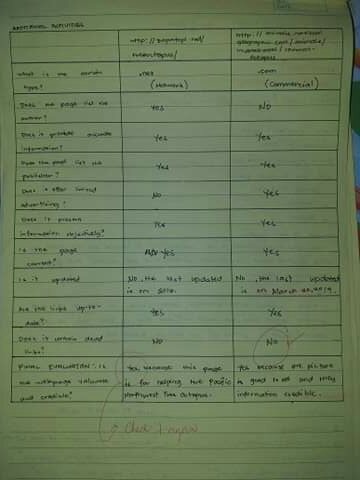 ADDITIONAL ACTIVITIES
http://zapatopi.net/
treeoctopus/
http://animals.national
geographic.com/animals/
invertebrates/common-
octopus
What is the domain
type?
.net
(Network)
.com
(Commercial)
Does the page list the
author?
Yes
No
Does it provide accurate
information?
Yes
Yes
Does the page list the
publisher?
Yes
Yes
Does it offer limited
advertising?
No
Yes
Does it present
information objectively?
Yes
Yes
Is the page
current?
Yes
Yes
Is it updated
No, the last updated
is on
No, the last updated
is on March
Are the links up-to-
date?
Yes
Yes
Does it contain dead
links?
No
No
FINAL EVALUATION: Is
the webpage valuable
and credible?
Yes, because this page
is for helping the Pacific
Northwest Tree Octopus.
Yes because the picture
is good to see and
information credible.
Check